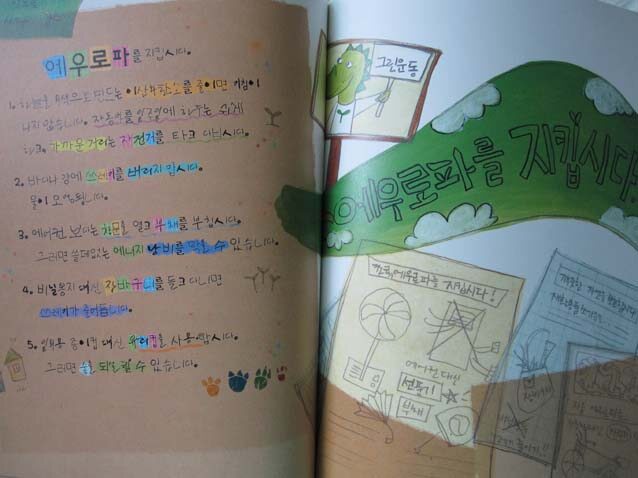 에우로파를 지킵시다.
1. 하늘을 시 색으로 만드는 이산화탄소를 줄이면 기침이
나지 않습니다. 자동차를 일주일에 하루는 쉽게
하고, 가까운 거리는 자전거를 타고 다닙시다.
2. 바다나 강에 쓰레기를 버리지 맙시다.
물이 오염됩니다.
3. 에어컨 보다는 창문을 열고 부채를 부칩시다.
그러면 쓸데없는 에너지 낭비를 막을 수 있습니다.
4. 비닐봉지 대신 장바구니를 들고 다니면
쓰레기가 줄어듭니다.
5. 일회용 종이컵 대신 유리컵을 사용합시다.
그러면 숲을 되살릴 수 있습니다.
그린운동
에우로파를 지킵시다!
에우로파를 지킵시다!
에어컨 대신
선풍기
부채
장바구니